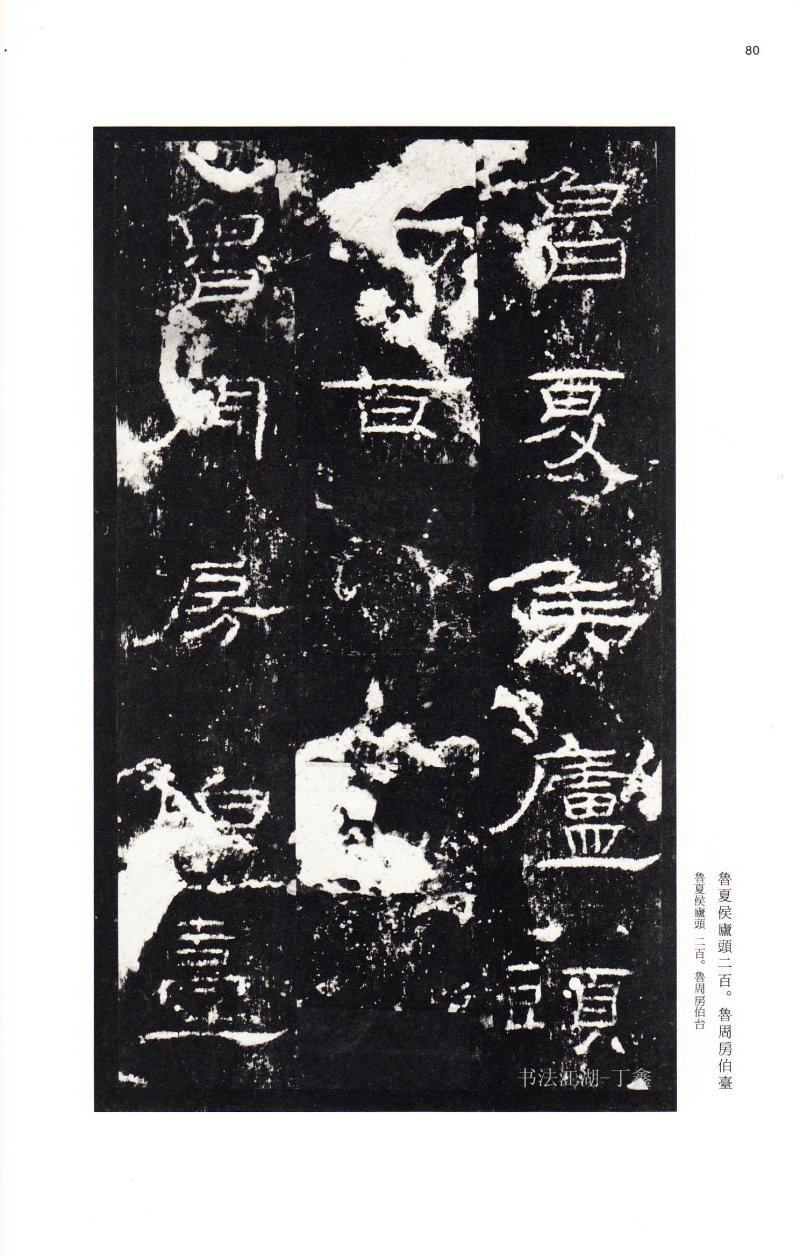 80
魯夏侯廬頭
二百
魯周房伯臺
魯夏侯廬頭二百。魯周房伯臺
魯夏侯廬頭 二百。魯周房伯台
书法江湖-丁鑫